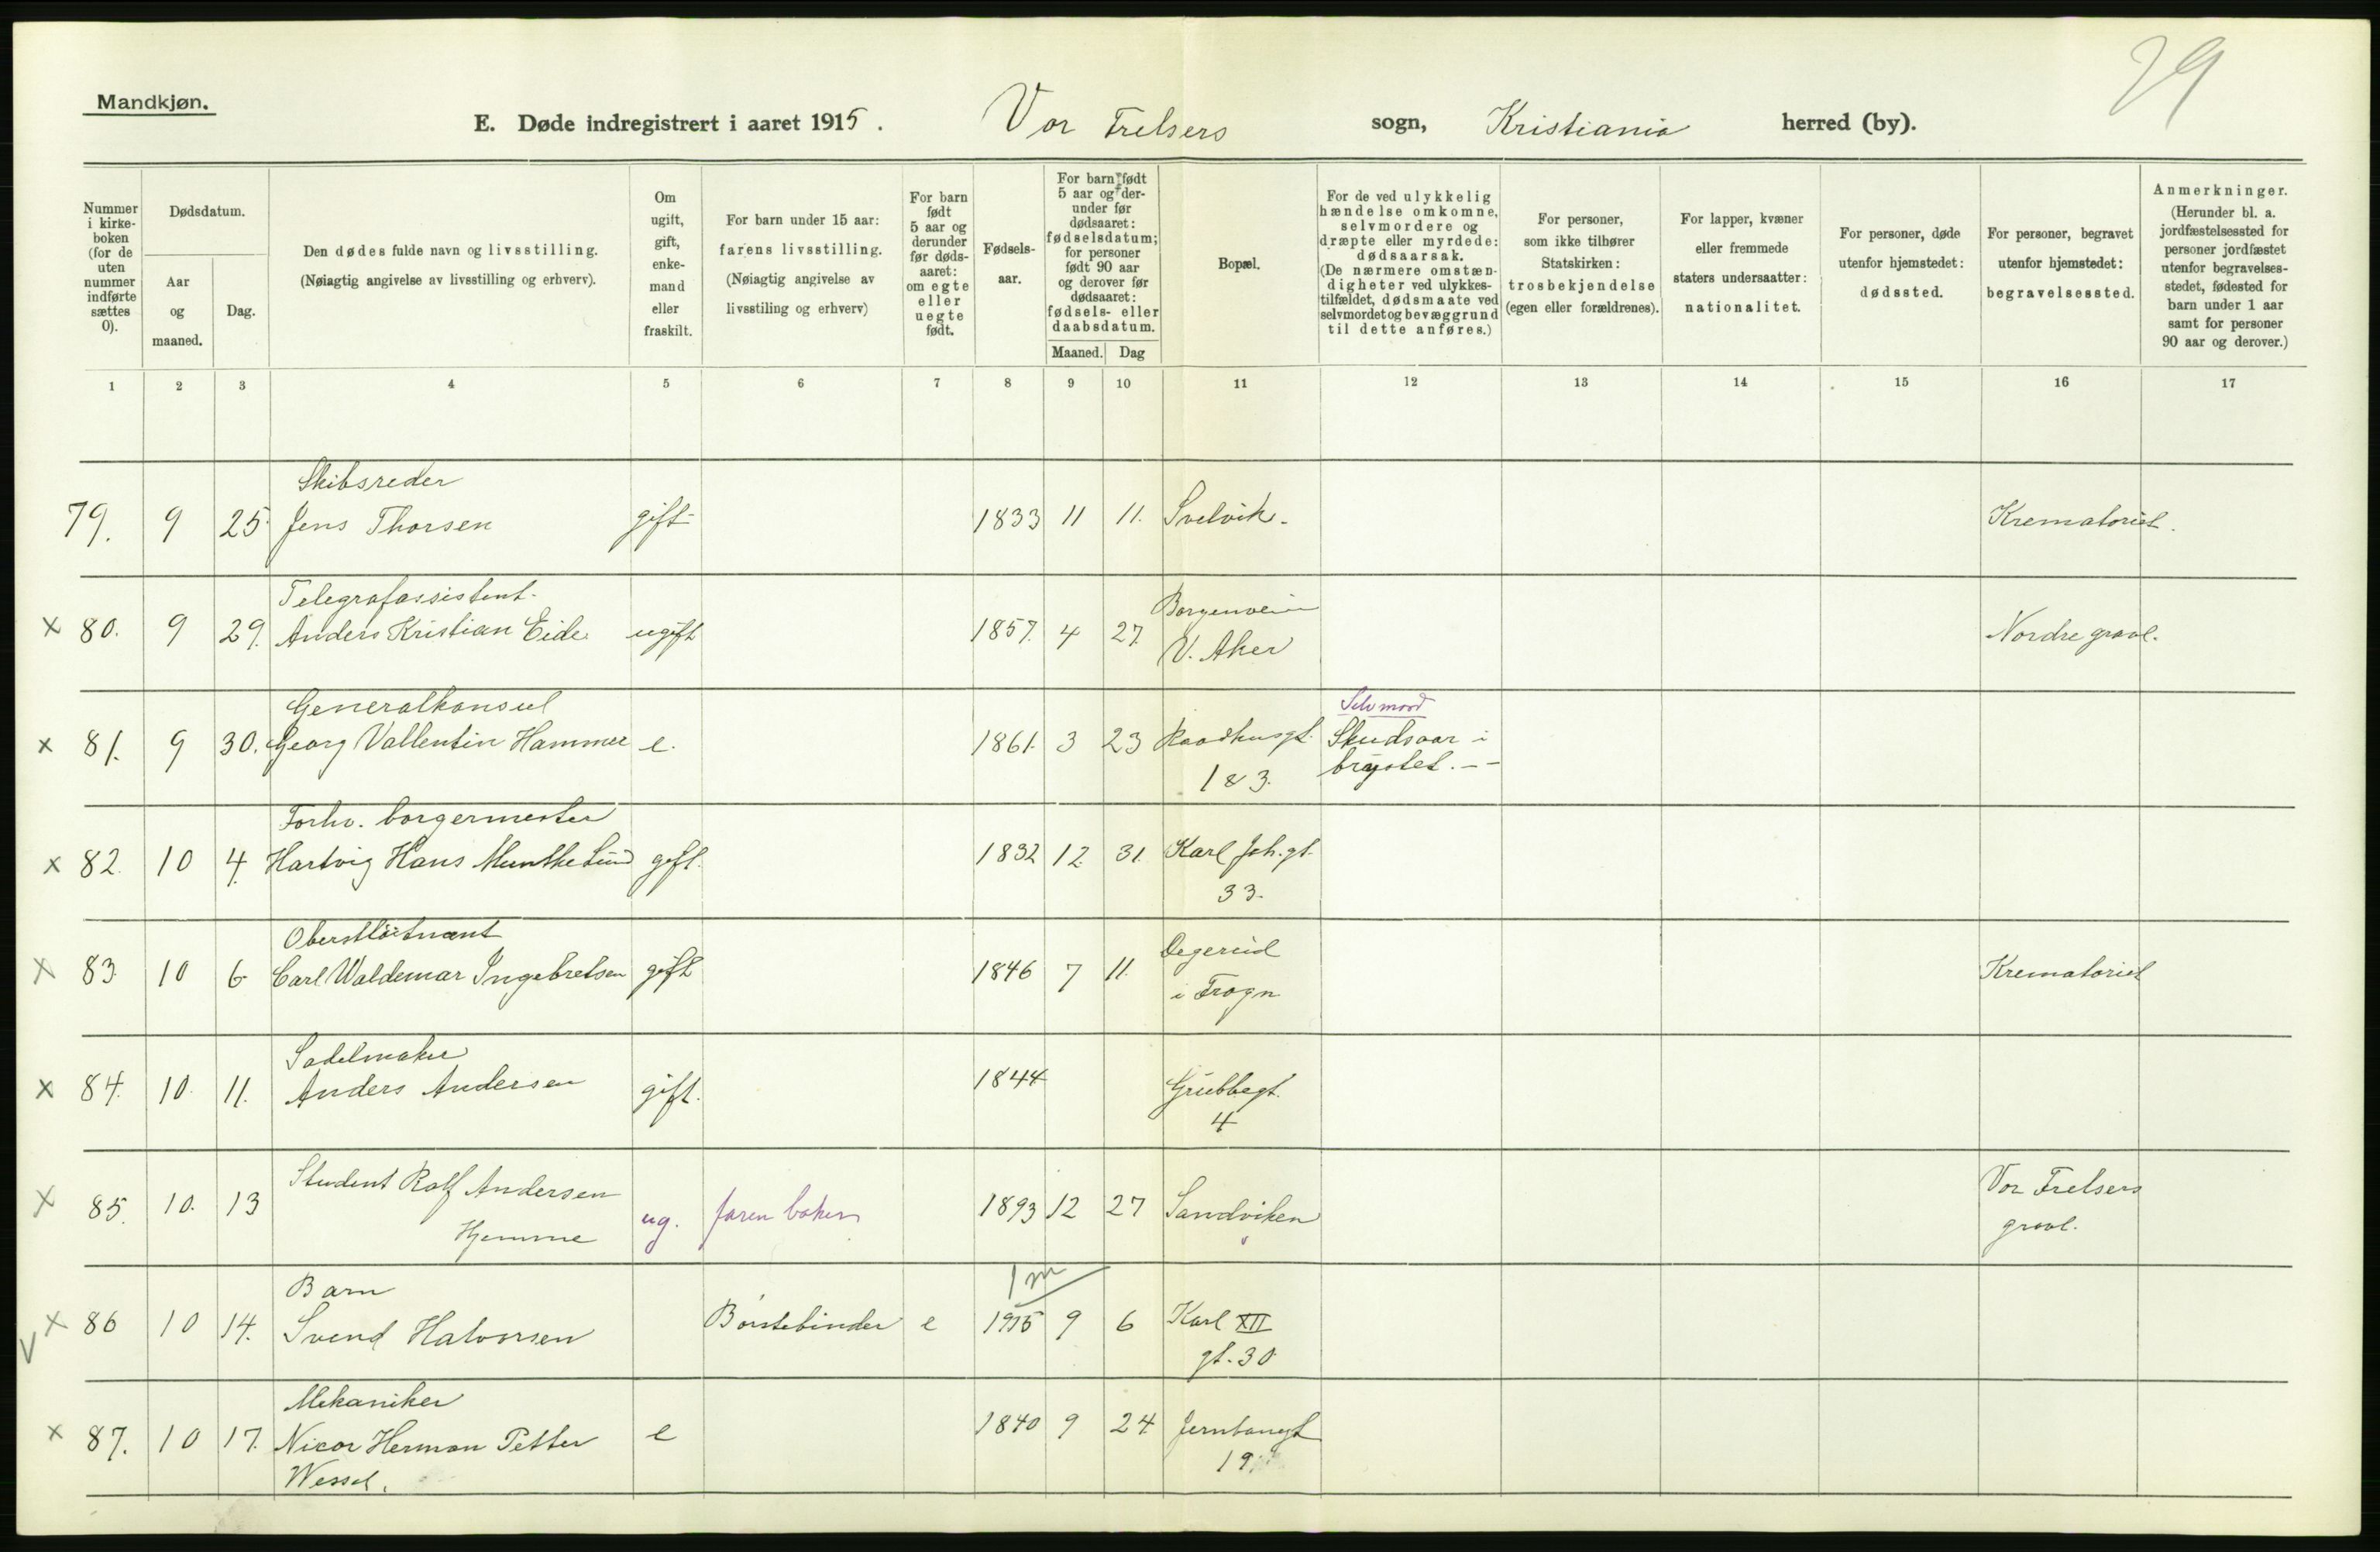 29
Mandkjøn.
E. Døde indregistrert i aaret 1915. Vor Frelsers sogn, Kristiania herred (by).
Nummer i kirke-boken (for de uten nummer indførte sættes 0).
Dødsdatum.
Aar og maaned.
Dag.
Den dødes fulde navn og livsstilling.
(Nøiagtig angivelse av livsstilling og erhverv).
Om ugift, gift, enke-mand eller fraskilt.
For barn under 15 aar: farens livsstilling.
(Nøiagtig angivelse av livsstiling og erhverv)
For barn født 5 aar og derunder før døds-aaret: om egte eller uegte født.
Fødsels-aar.
For barn født 5 aar og der-under før dødsaaret: fødselsdatum; for personer født 90 aar og derover før dødsaaret: fødsels- eller daabsdatum.
Maaned. Dag
Bopæl.
For de ved ulykkelig hændelse omkomne, selvmordere og dræpte eller myrdede: dødsaarsak.
(De nærmere omstæn-digheter ved ulykkes-tilfældet, dødsmaate ved selvmordet og bevæggrund til dette anføres.)
For personer, som ikke tilhører Statskirken: trosbekjendelse (egen eller forældrenes).
For lapper, kvæner eller fremmede staters undersaatter: nationalitet.
For personer, døde utenfor hjemstedet: dødssted.
For personer, begravet utenfor hjemstedet: begravelsessted.
Anmerkninger.
(Herunder bl. a. jordfæstelsessted for personer jordfæstet utenfor begravelses-stedet, fødested for barn under 1 aar samt for personer 90 aar og derover.)
1 2 3 4 5 6 7 8 9 10 11 12 13 14 15 16 17
Skibsreder
79. 9 25. Jens Thorsen gift 1833 11 11. Svelvik. Krematoriet.
Telegrafassistent. Borgenveien
x 80. 9 29. Anders Kristian Eide ugift 1857. 4 27. V. Aker Nordre gravl.
Generalkonsul Selvmord
x 81. 9 30. Georg Vallentin Hammer e. 1861. 3 23 Raadhusgt. Skudsaar i
1 & 3. brystet. - -
Forhv. borgermester
x 82. 10 4. Hartvig Hans Munthe Lund gift. 1832 12. 31. Karl Joh. gt.
33.
Oberstløitnant Degerud
x 83 10 6. Carl Waldemar Ingebretsen gift 1846 7 11. i Frogn Krematoriet
Sadelmaker
x 84. 10. 11. Anders Andersen gift. 1844 Grubbegt.
4
Student Rolf Andersen Vor Frelsers
x 85. 10. 13 Hjemme ug. faren baker 1893 12 27 Sandviken gravl.
Barn 1 m
V x 86 10 14. Svend Halvorsen Børstebinder e 1915 9 6 Karl XII
gt. 30.
Mekaniker
x 87. 10 17. Herman Petter e 1840 9 24 Jernbanegt
Wessel. 19